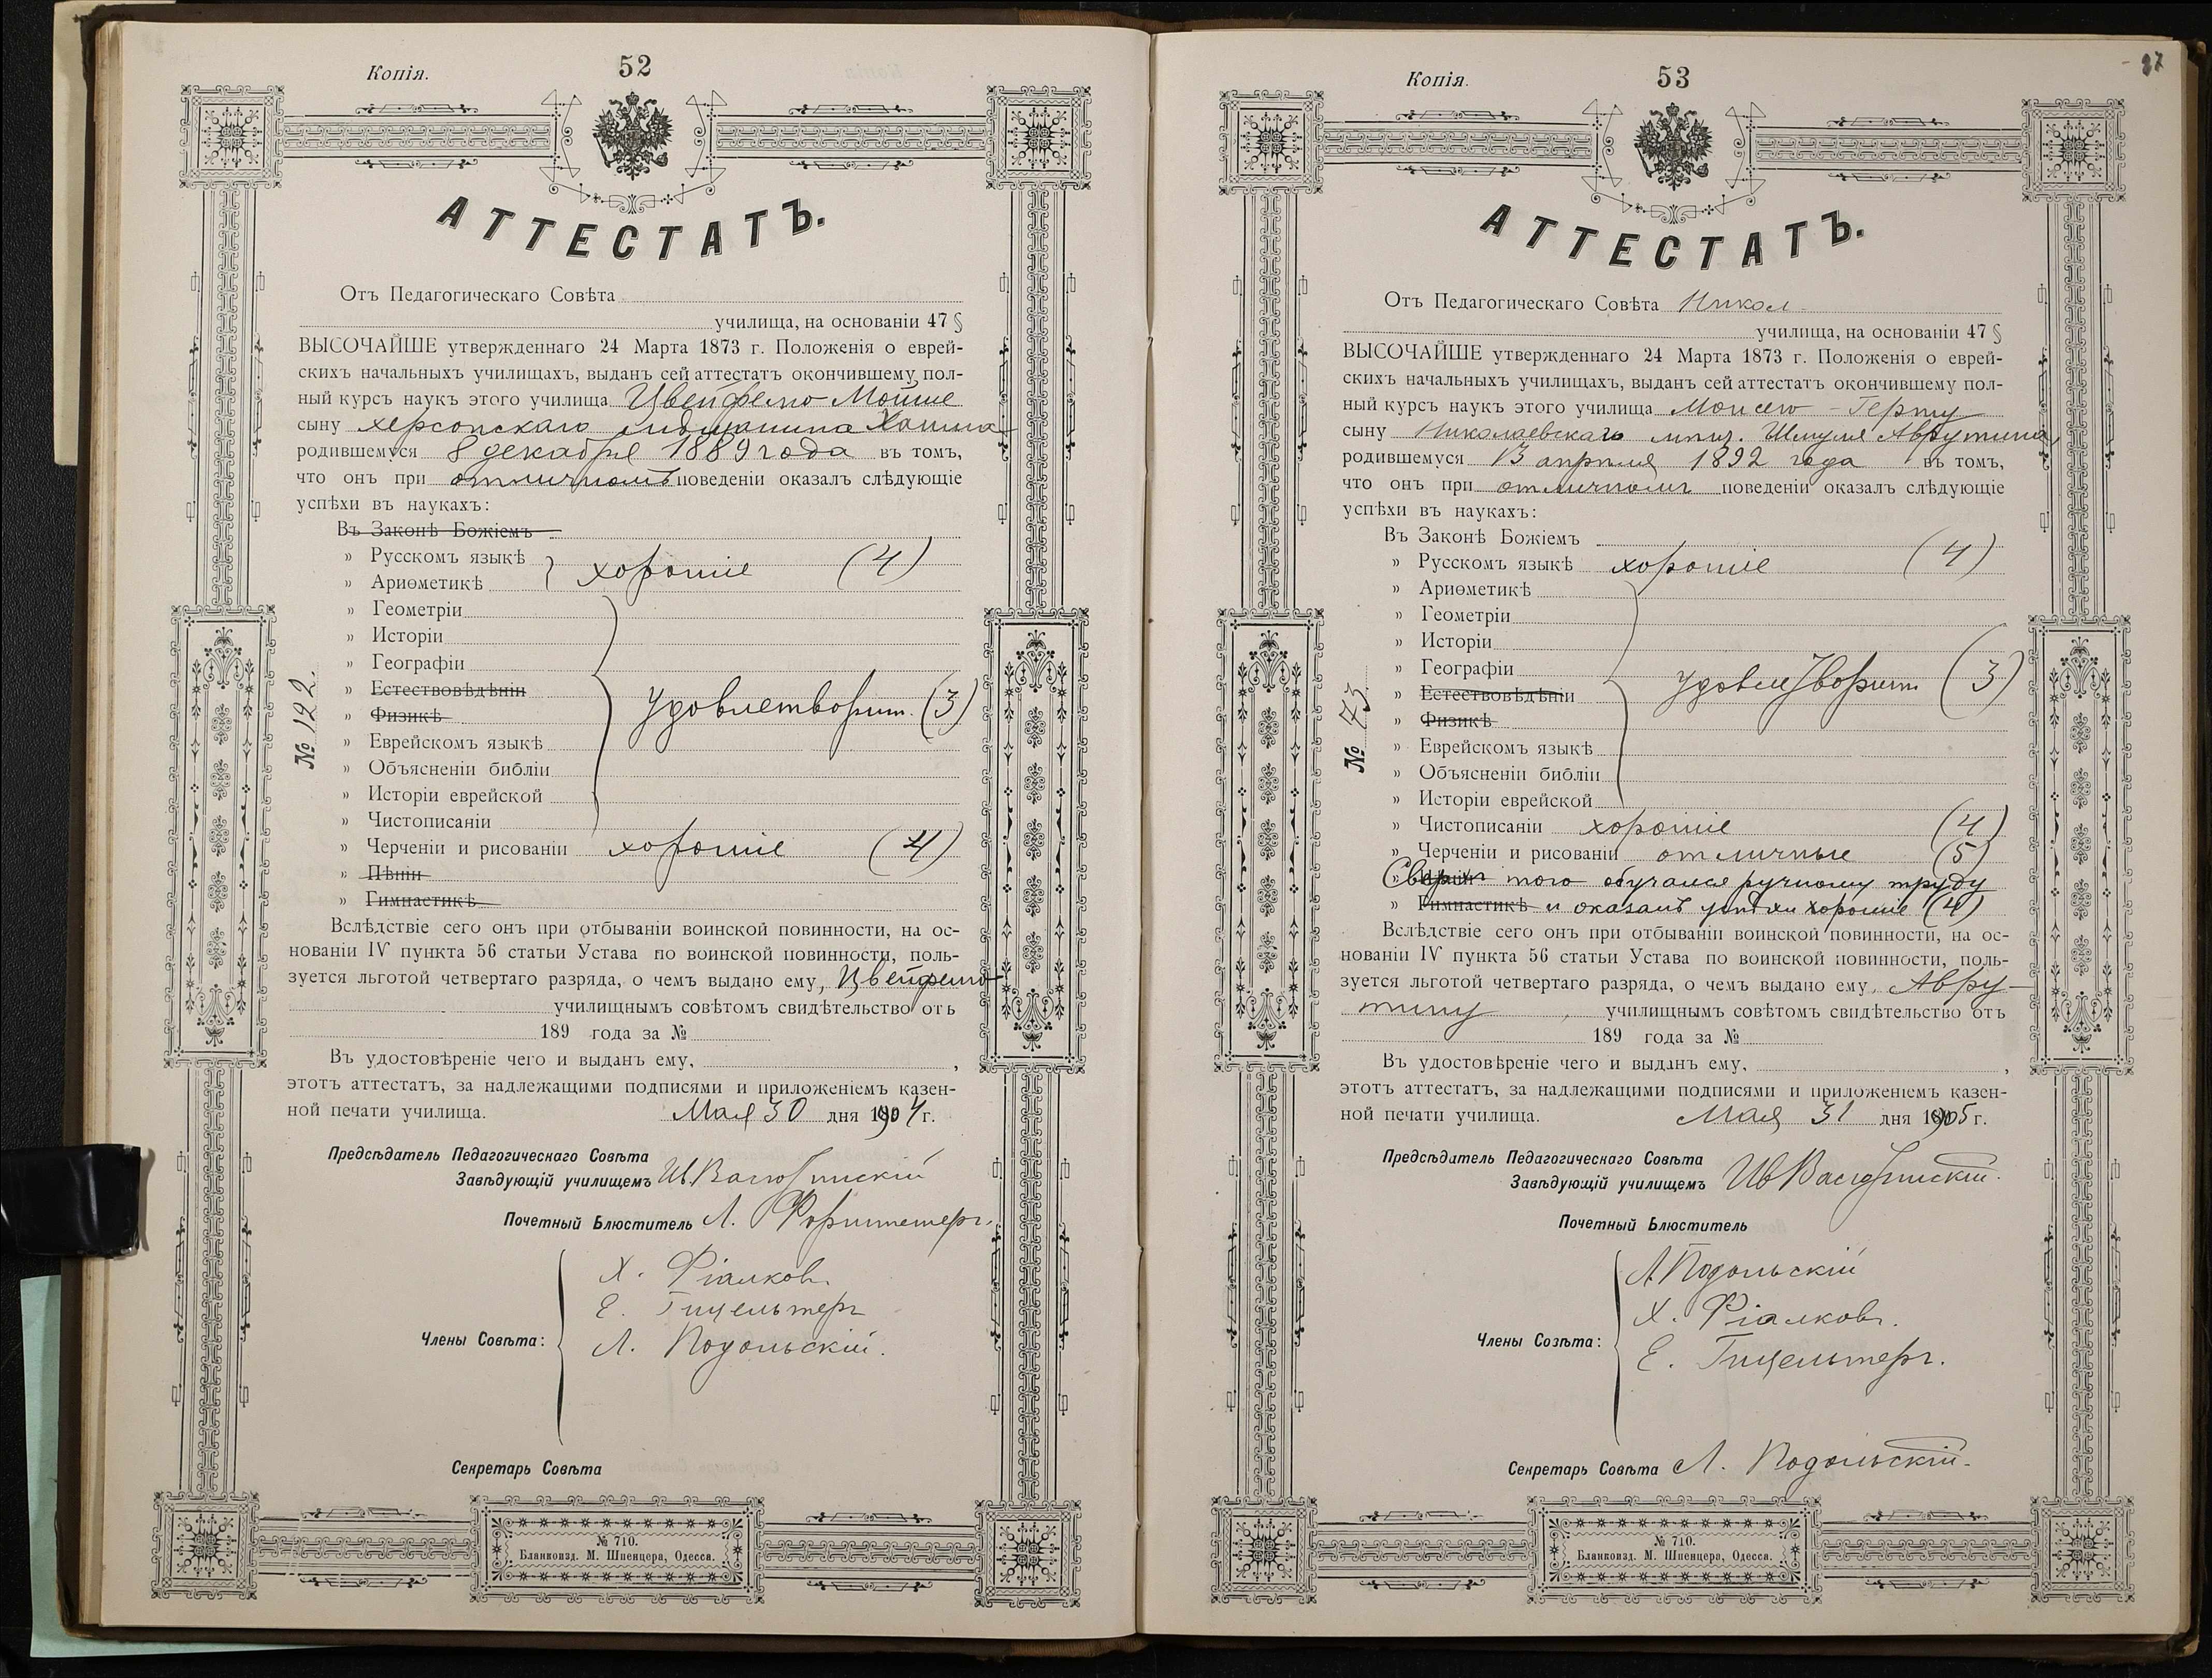 Копія.
52
АТТЕСТАТЪ.
Отъ Педагогическаго Совѣта
училища, на основаніи 47 §
ВЫСОЧАЙШЕ утвержденнаго 24 Марта 1873 г. Положенія о еврей-
скихъ начальныхъ училищахъ, выданъ сей аттестатъ окончившему пол-
ный курсъ наукъ этого училища Цвейфелю Мойше
сыну херсонскаго мѣщанина Хаима
родившемуся 8 декабря 1889 года въ томъ,
что онъ при отличномъ поведеніи оказалъ слѣдующіе
успѣхи въ наукахъ:
Въ Законѣ Божіемъ
» Русскомъ языкѣ
хорошіе (4)
» Ариѳметикѣ
» Геометріи
» Исторіи
» Географіи
» Естествовѣдѣніи
удовлетворит. (3)
» Физикѣ
» Еврейскомъ языкѣ
» Объясненіи библіи
» Исторіи еврейской
» Чистописаніи
» Черченіи и рисованіи хорошіе (4)
» Пѣніи
» Гимнастикѣ
№ 122.
Вслѣдствіе сего онъ при отбываніи воинской повинности, на ос-
нованіи IV пункта 56 статьи Устава по воинской повинности, поль-
зуется льготой четвертаго разряда, о чемъ выдано ему, Цвейфелю
училищнымъ совѣтомъ свидѣтельство отъ
189 года за №
Въ удостовѣреніе чего и выданъ ему,
этотъ аттестатъ, за надлежащими подписями и приложеніемъ казен-
ной печати училища. Мая 30 дня 1904 г.
Предсѣдатель Педагогическаго Совѣта
Завѣдующій училищемъ Ив
Почетный Блюститель Л.
Х. Фіалковъ
Е. Гицельтеръ
Члены Совѣта: Л. Подольскій.
Секретарь Совѣта
№ 710.
Бланкоизд. М. Шпенцера, Одесса.
Копія.
53
37
АТТЕСТАТЪ.
Отъ Педагогическаго Совѣта Никол.
училища, на основаніи 47 §
ВЫСОЧАЙШЕ утвержденнаго 24 Марта 1873 г. Положенія о еврей-
скихъ начальныхъ училищахъ, выданъ сей аттестатъ окончившему пол-
ный курсъ наукъ этого училища Моисею - Гершу
сыну Николаевскаго мѣщ. Шмуля Аврутина,
родившемуся 13 апрѣля 1892 года въ томъ,
что онъ при отличномъ поведеніи оказалъ слѣдующіе
успѣхи въ наукахъ:
Въ Законѣ Божіемъ
» Русскомъ языкѣ хорошіе (4)
» Ариѳметикѣ
» Геометріи
» Исторіи
» Географіи
удовлетворит. (3)
» Естествовѣдѣніи
» Физикѣ
» Еврейскомъ языкѣ
» Объясненіи библіи
» Исторіи еврейской
» Чистописаніи хорошіе (4)
» Черченіи и рисованіи отличные (5)
Сверхъ того обучался ручному труду
» Гимнастикѣ и оказалъ успѣхи хорошіе (4)
№ 73
Вслѣдствіе сего онъ при отбываніи воинской повинности, на ос-
нованіи IV пункта 56 статьи Устава по воинской повинности, поль-
зуется льготой четвертаго разряда, о чемъ выдано ему, Авру-
тину училищнымъ совѣтомъ свидѣтельство отъ
189 года за №
Въ удостовѣреніе чего и выданъ ему,
этотъ аттестатъ, за надлежащими подписями и приложеніемъ казен-
ной печати училища. Мая 31 дня 1905 г.
Предсѣдатель Педагогическаго Совѣта
Завѣдующій училищемъ Ив
Почетный Блюститель
Л Подольскій
Х. Фіалковъ.
Члены Совѣта:
Е. Гицельтеръ.
Секретарь Совѣта Л. Подольскій.
№ 710.
Бланкоизд. М. Шпенцера, Одесса.